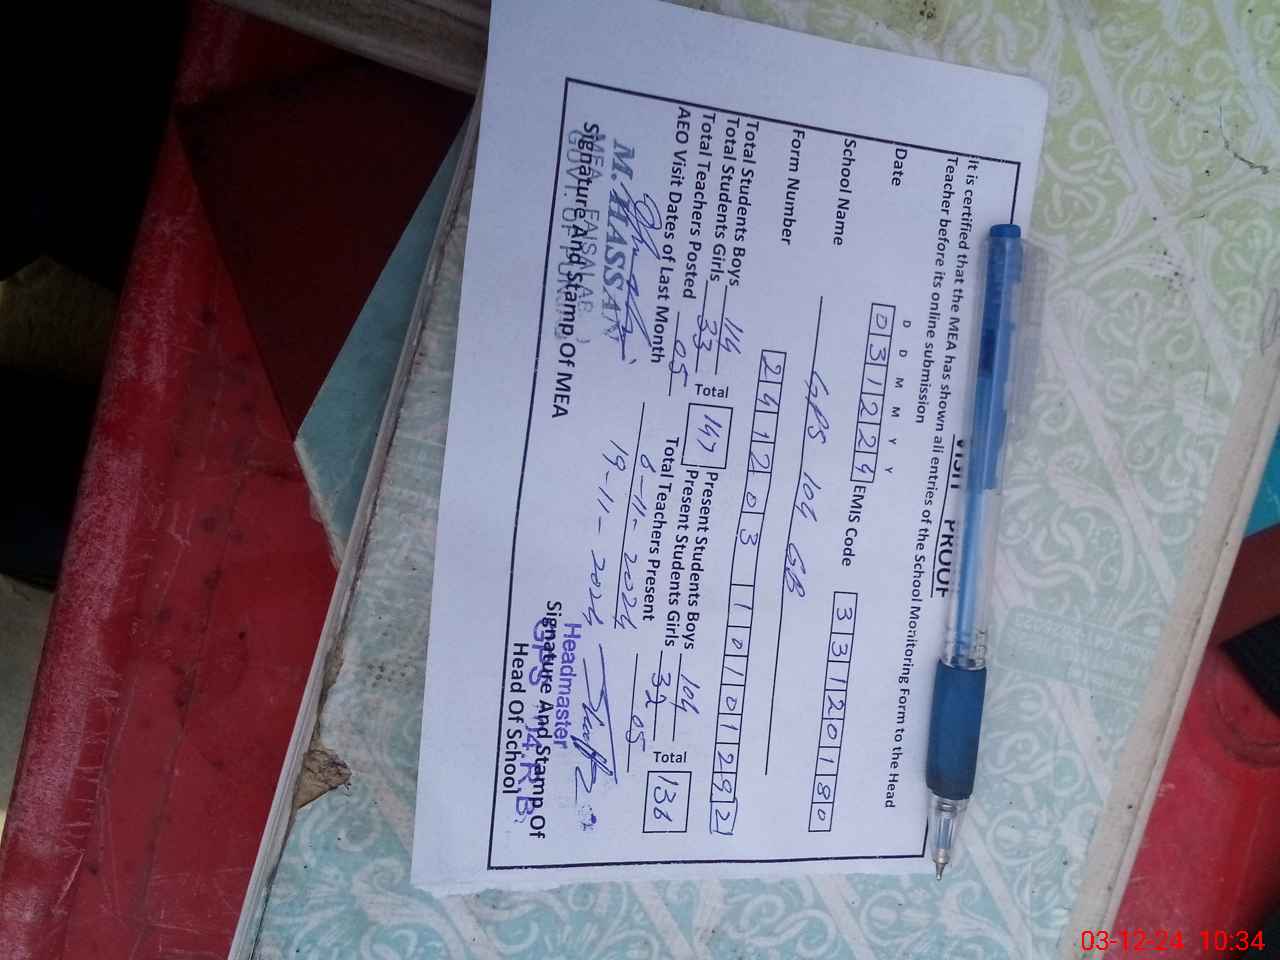 VISIT PROOF
It is certified that the MEA has shown all entries of the School Monitoring Form to the Head
Teacher before its online submission
D D M M Y Y
Date 0 3 1 2 2 4 EMIS Code 3 3 1 2 0 1 8 0
School Name GPS 104 GB
Form Number 2 4 1 2 0 3 1 0 1 0 1 2 9 2
Total Students Boys 114 Present Students Boys 104
Total Students Girls 33 Total 147 Present Students Girls 32 Total 136
Total Teachers Posted 05 Total Teachers Present 05
AEO Visit Dates of Last Month 6-11-2024
19-11-2024
M. HASSAN
Signature And Stamp Of MEA
MEA FAISALAB
GOVT. OF PUNJAB
Headmaster
Signature And Stamp Of
Head Of School
GPS 4.R.B.
03-12-24 10:34